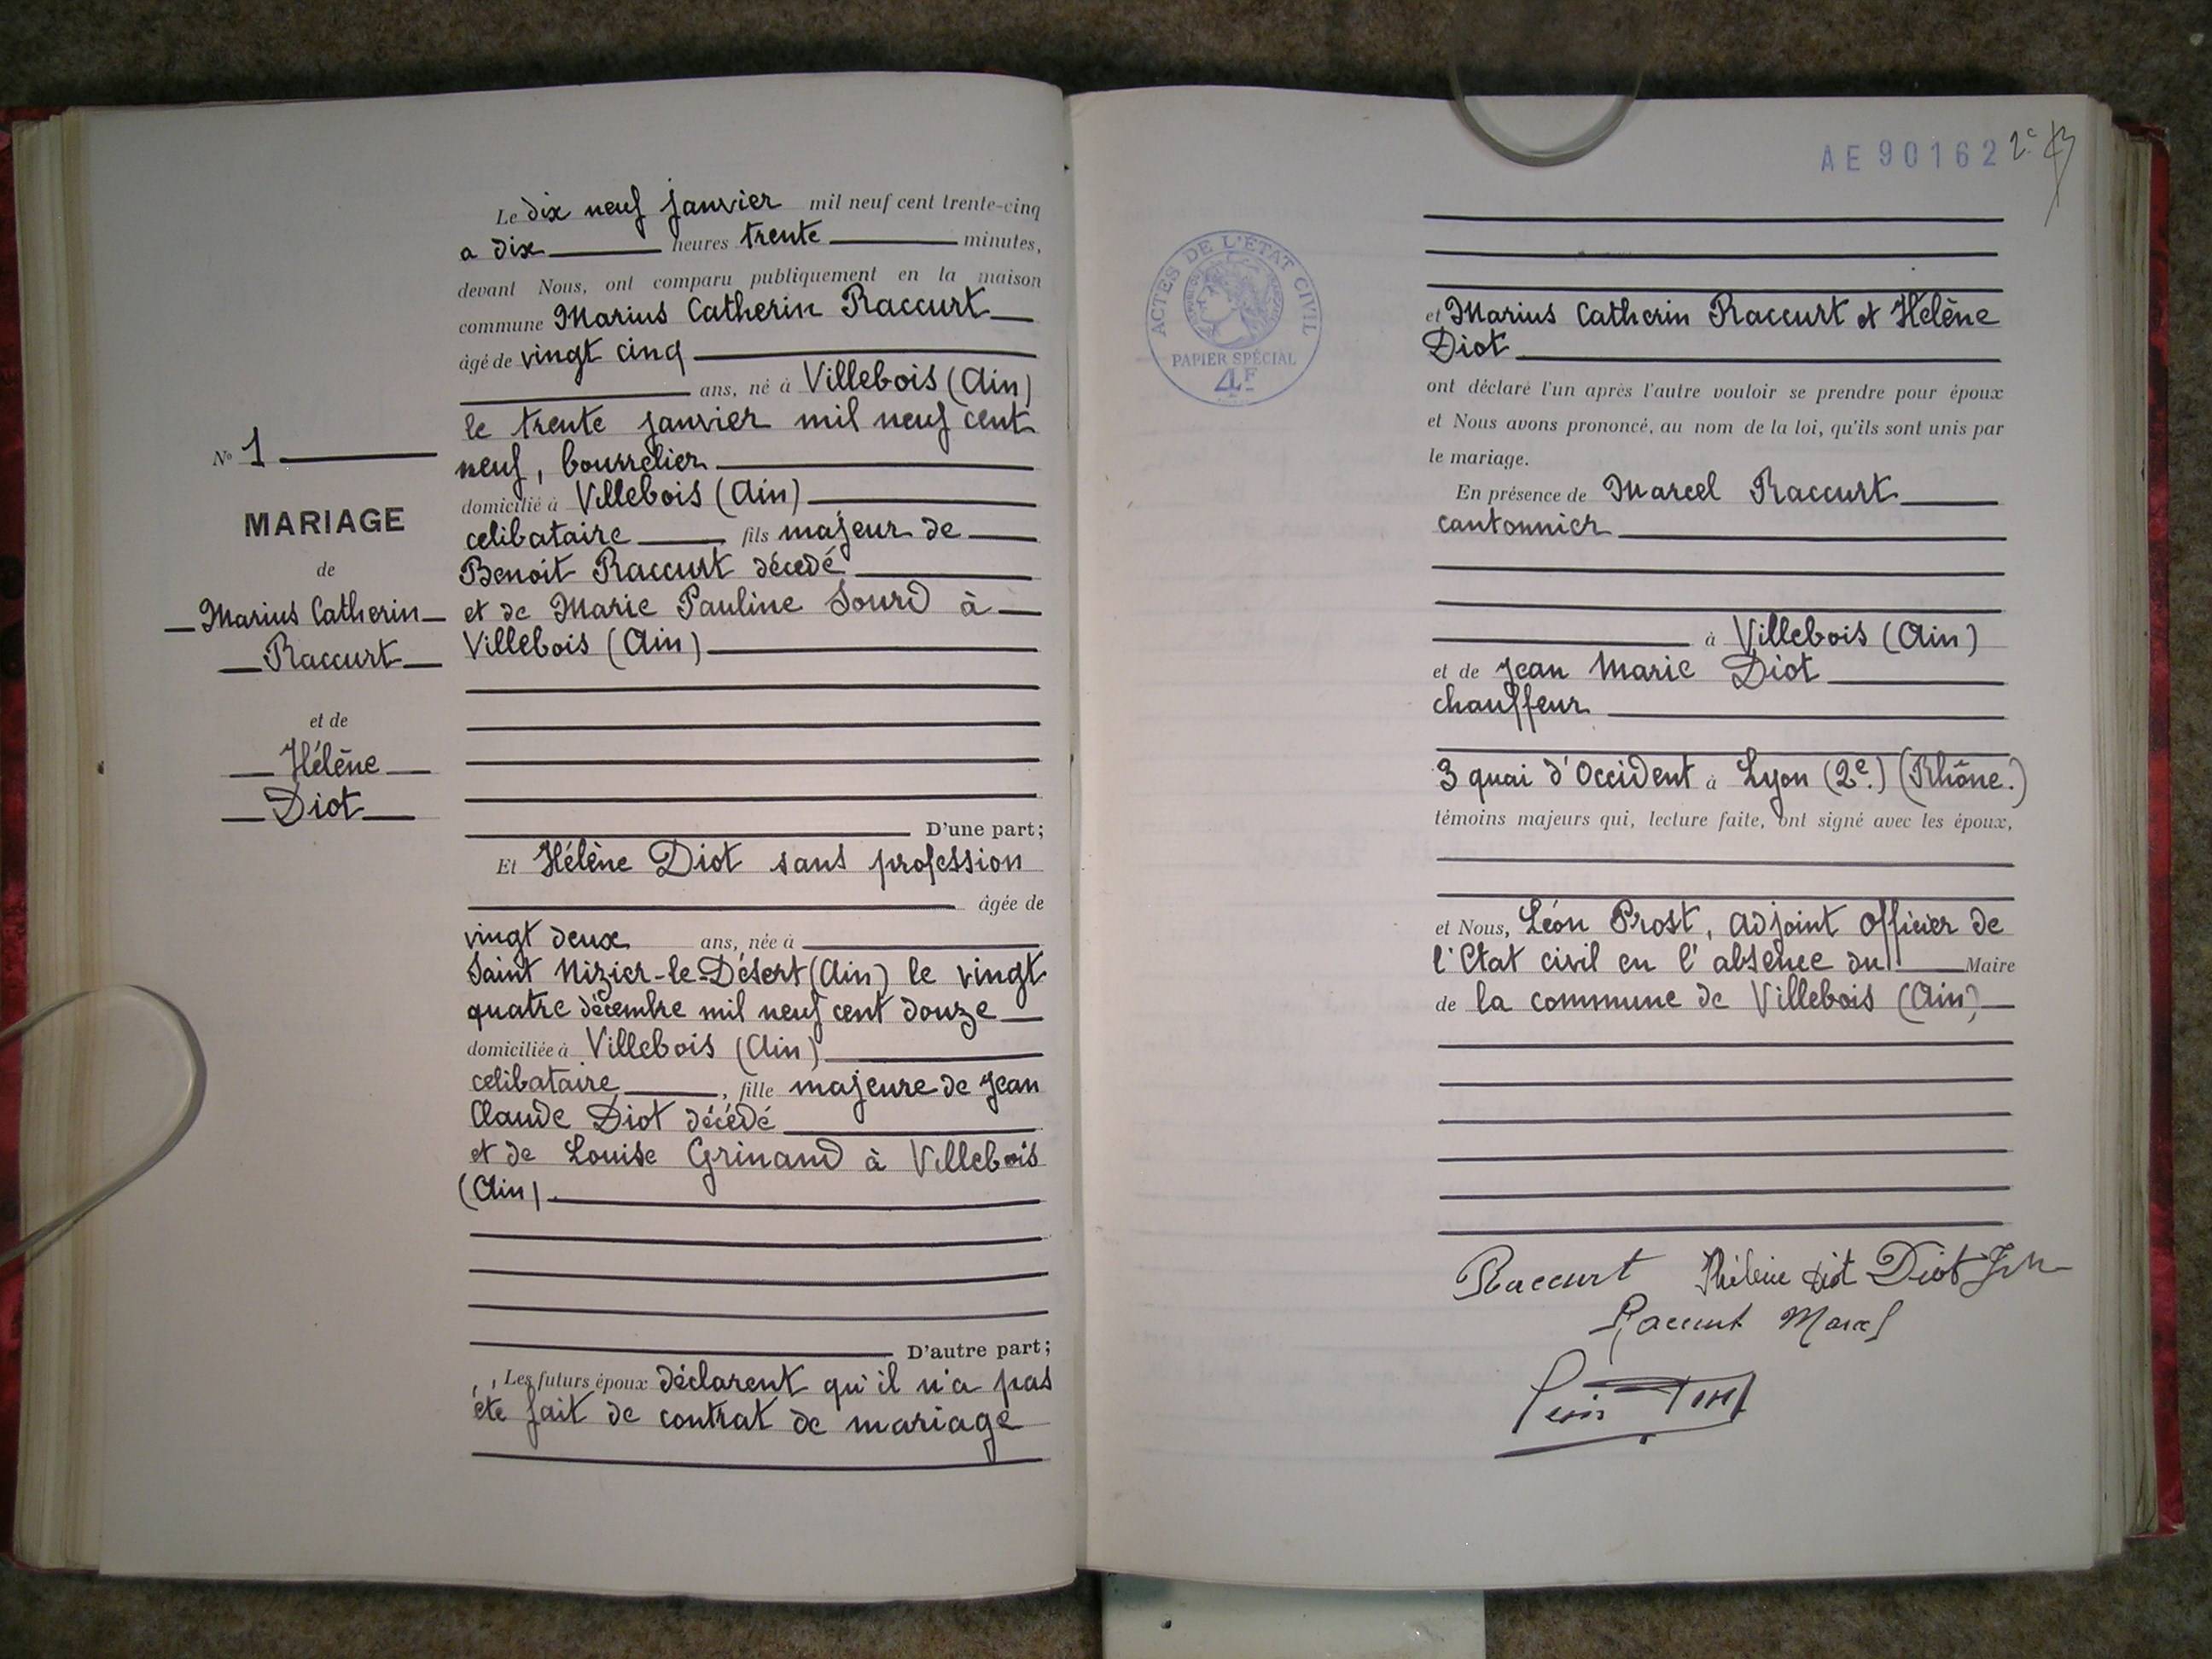 N° 1
MARIAGE
de
Marius Catherin
Raccurt
et de
Hélène
Diot
Le dix neuf janvier mil neuf cent trente-cinq
a dix heures trente minutes,
devant Nous, ont comparu publiquement en la maison
commune Marius Catherin Raccurt
âgé de vingt cinq
ans, né à Villebois (Ain)
le trente janvier mil neuf cent
neuf, bourrelier
domicilié à Villebois (Ain)
celibataire fils majeur de
Benoit Raccurt décedé
et de Marie Pauline Sourd à
Villebois (Ain)
D'une part;
Et Hélène Diot sans profession
âgée de
vingt deux ans, née à
Saint Nizier-le-Désert (Ain) le vingt
quatre décembre mil neuf cent douze
domiciliée à Villebois (Ain)
celibataire, fille majeure de Jean
Claude Diot décédé
et de Louise Grinand à Villebois
(Ain)
D'autre part;
Les futurs époux déclarent qu'il n'a pas
été fait de contrat de mariage
AE 90162
ACTES DE L'ÉTAT CIVIL
PAPIER SPÉCIAL
4F
et Marius Catherin Raccurt et Hélène
Diot
ont déclaré l'un après l'autre vouloir se prendre pour époux
et Nous avons prononcé, au nom de la loi, qu'ils sont unis par
le mariage.
En présence de Marcel Raccurt
cantonnier
à Villebois (Ain)
et de Jean Marie Diot
chauffeur
3 quai d'Occident à Lyon (2e.) (Rhône.)
témoins majeurs qui, lecture faite, ont signé avec les époux,
et Nous, Léon Prost, adjoint officier de
l'Etat civil en l'absence du Maire
de la commune de Villebois (Ain)
Raccurt Hélène Diot Diot J M
Raccurt Marcel
Léon Prost